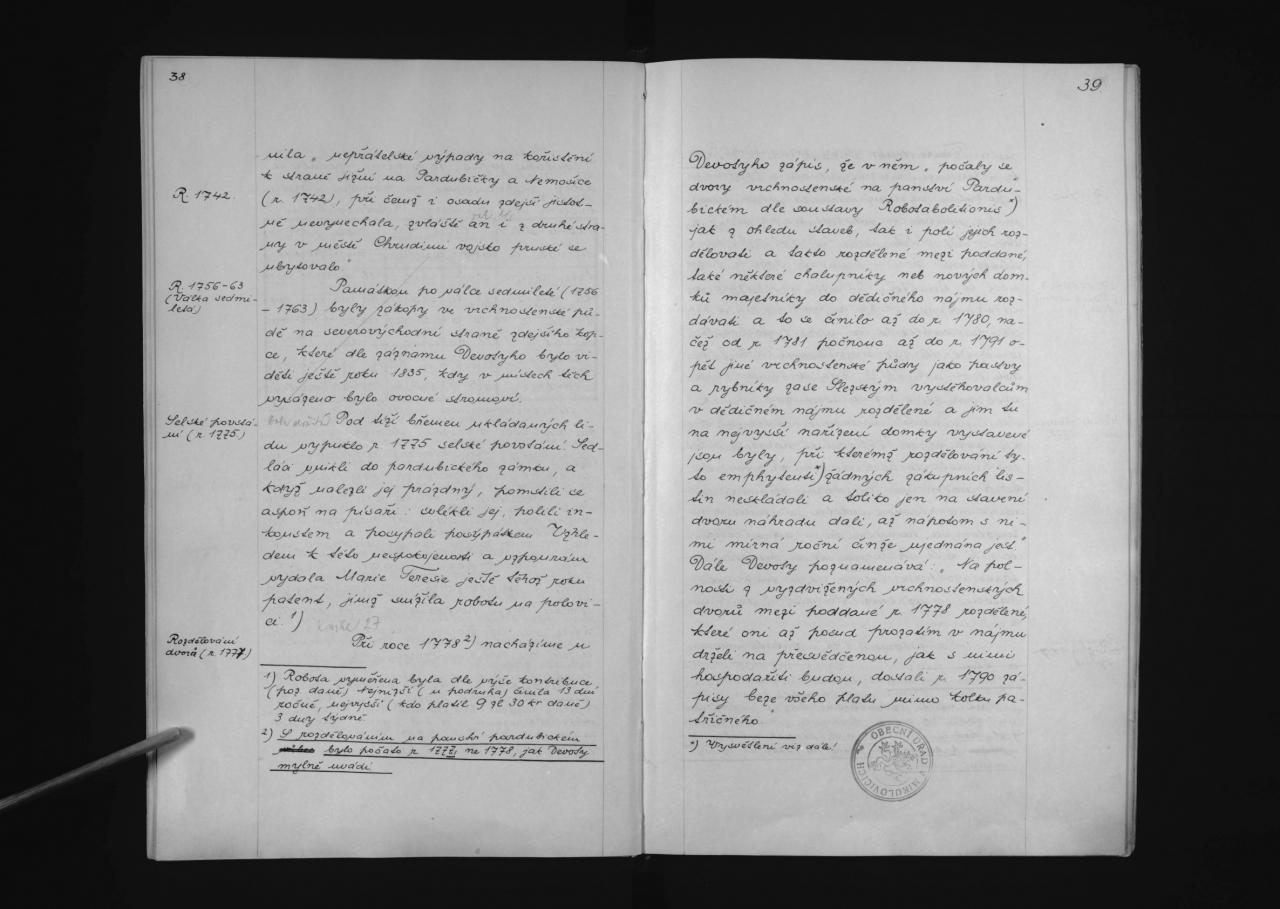 38
nila „ nepřátelské výpady na kořistění
k straně jižní na Pardubičky a Nemošice
R. 1742.
(r. 1742), při čemž i osadu zdejší jistot-
ně nevynechala, zvláště an i z druhé stra-
ny v městě Chrudimi vojsko pruské se
ubytovalo"
R. 1756-63
(Válka sedmi-
letá)
Památkou po válce sedmileté (1756
- 1763) byly zákopy ve vrchnostenské pů-
dě na severovýchodní straně zdejšího kop-
ce, které dle záznamu Devotyho bylo vi-
děti ještě roku 1835, kdy v místech těch
vysázeno bylo ovocné stromoví.
Selské povstá-
ní (r. 1775)
Pod tíží břemen ukládaných li-
du vypuklo r. 1775 selské povstání. Sed-
láci vnikli do pardubického zámku, a
když nalezli jej prázdný, pomstili se
aspoň na písaři: svlékli jej, polili in-
koustem a posypali posýpátkem. Vzhle-
dem k této nespokojenosti a vzpourám
vydala Marie Terezie ještě téhož roku
patent, jímž snížila robotu na polovi-
ci. 1)
Rozdělování
dvorů (r. 1777)
Při roce 1778 2) nacházíme u
1) Robota vyměřena byla dle výše kontribuce,
(poz. daně) Nejnižší (u podruha) činila 13 dní
ročně, nejvyšší (kdo platil 9 zl 30 kr daně)
3 dny týdně
2) S rozdělováním na panství pardubickém
bylo počato r. 1777, ne 1778, jak Devoty
mylně uvádí
39
Devotyho zápis, že v něm „ počaly se
dvory vrchnostenské na panství Pardu-
bickém dle soustavy Robotabolitionis *)
jak z ohledu staveb, tak i polí jejich roz-
dělovati a takto rozdělené mezi poddané,
také některé chalupníky neb nových dom-
ků majetníky do dědičného nájmu roz-
dávati a to se činilo až do r. 1780, na-
čež od r. 1781 počnouc až do r. 1791 o-
pět jiné vrchnostenské půdy jako pastvy
a rybníky zase Slezským vystěhovalcům
v dědičném nájmu rozdělené a jim tu
na nejvyšší nařízení domky vystavené
jsou byly, při kterémž rozdělování ty-
to emphyteuti *) žádných zákupních lis-
tin neskládali a toliko jen na stavení
dvoru náhradu dali, až nápotom s ni-
mi mírná roční činže ujednána jest."
Dále Devoty poznamenává: „ Na pol-
nosti z vyzdvižených vrchnostenských
dvorů mezi poddané r. 1778 rozdělené,
které oni až posud prozatím v nájmu
drželi na přesvědčenou, jak s nimi
hospodařiti budou, dostali r. 1790 zá-
pisy beze všeho platu mimo kolku pa-
třičného"
*) Vysvětlení viz dále!
OBECNÍ ÚŘAD V MIKULOVICÍCH